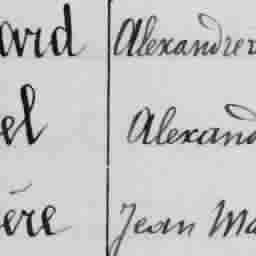 ard Alexandre
el Alexand
ère Jean Ma